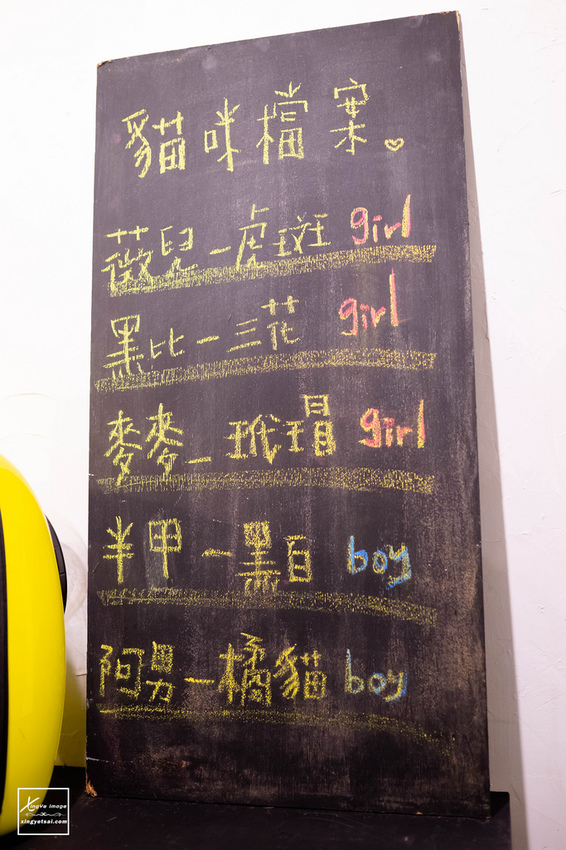 貓咪檔案。
薇兒－虎斑 girl
黑比－三花 girl
麥麥－玳瑁 girl
半甲－黑白 boy
阿男－橘貓 boy
XingYe image
xingyetsai.com